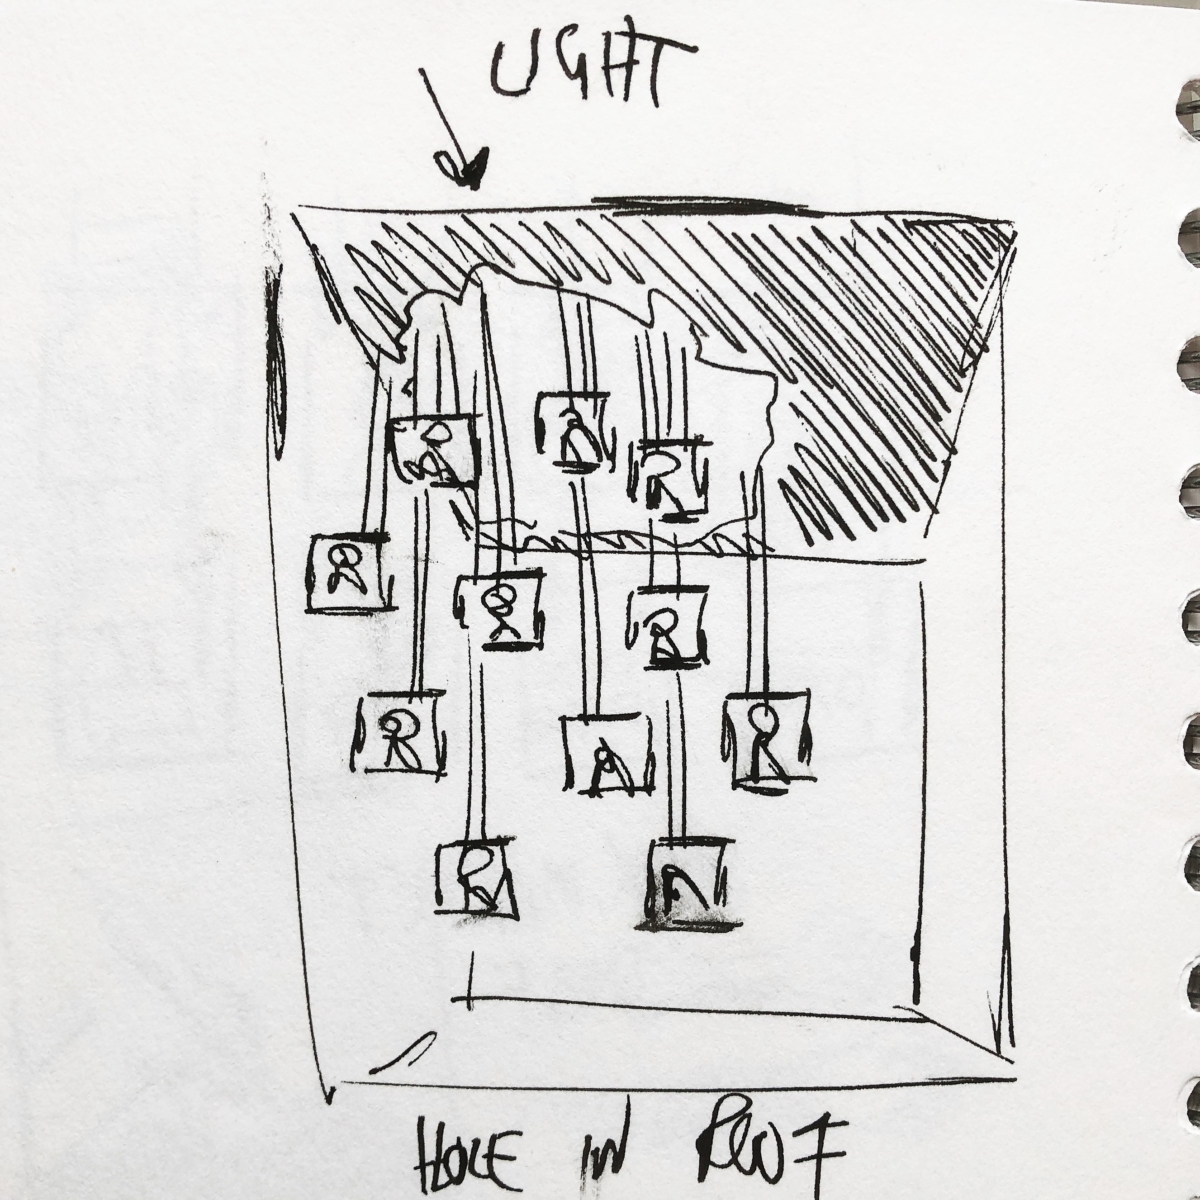 LIGHT
HOLE IN ROOF